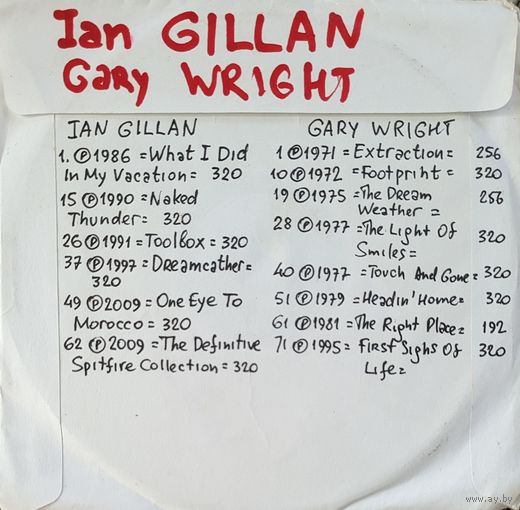 Ian GILLAN
Gary WRIGHT
IAN GILLAN
1. ℗1986 =What I Did
In My Vacation= 320
15 ℗1990 =Naked
Thunder= 320
26 ℗1991 =Toolbox = 320
37 ℗1997 =Dreamcather=
320
49 ℗2009 = One Eye To
Morocco = 320
62 ℗2009 =The Definitive
Spitfire Collection = 320
GARY WRIGHT
1 ℗1971 = Extraction= 256
10 ℗1972 =Footprint = 320
19 ℗1975 =The Dream 256
Weather =
28 ℗1977 =The Light Of 320
Smiles=
40 ℗1977 =Touch And Gone= 320
51 ℗1979 = Headin' Home= 320
61 ℗1981 =The Right Place= 192
71 ℗1995= First Sighs Of 320
Life=
www.ay.by